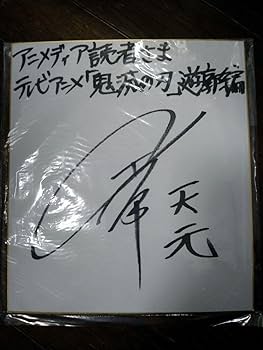 アニメディア読者さま
テレビアニメ「鬼滅の刃」遊郭編
天元